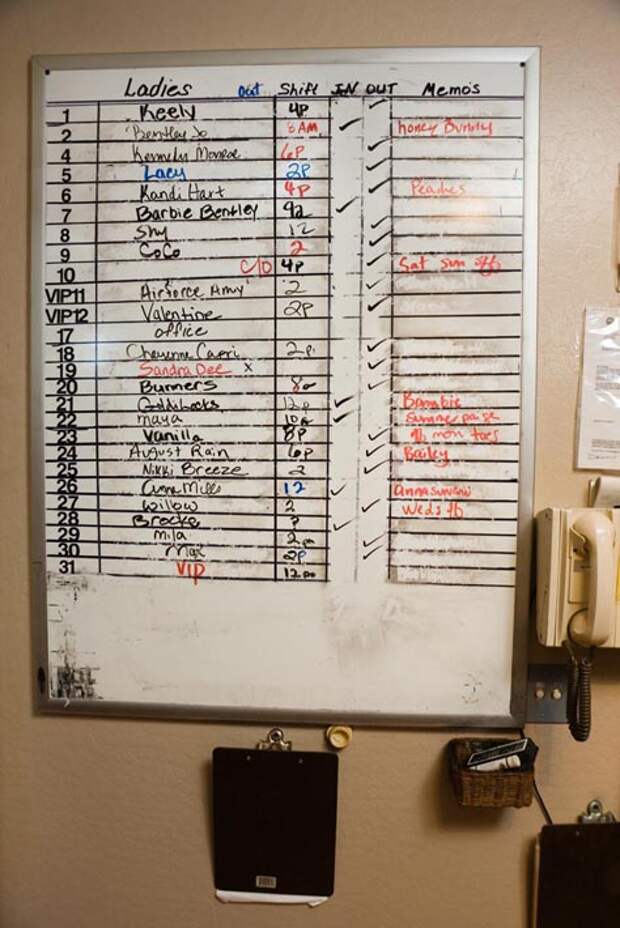 Ladies Out Shift IN OUT Memo's
1 Keely 4P
2 Bentley Jo 8AM honey Bunny
4 Kennedy Monroe 6P
5 Lacy 2P
6 Kandi Hart 4P Peaches
7 Barbie Bentley 9a
8 Shy 12
9 CoCo 2
10 C/O 4P Sat sun off
VIP11 Airforce Amy 2
VIP12 Valentine 2P
17 office
18 Cheyenne 2P
19 Sandra Dee x
20 Burners 8a
21 Goldilocks 12p
22 maya 10a summer
23 Vanilla 8P mon tues
24 August Rain 6P Bailey
25 Nikki Breeze 2
26 12
27 willow 2 Weds
28 Brooke
29 mila 2
30 Max 2P
31 VIP 12